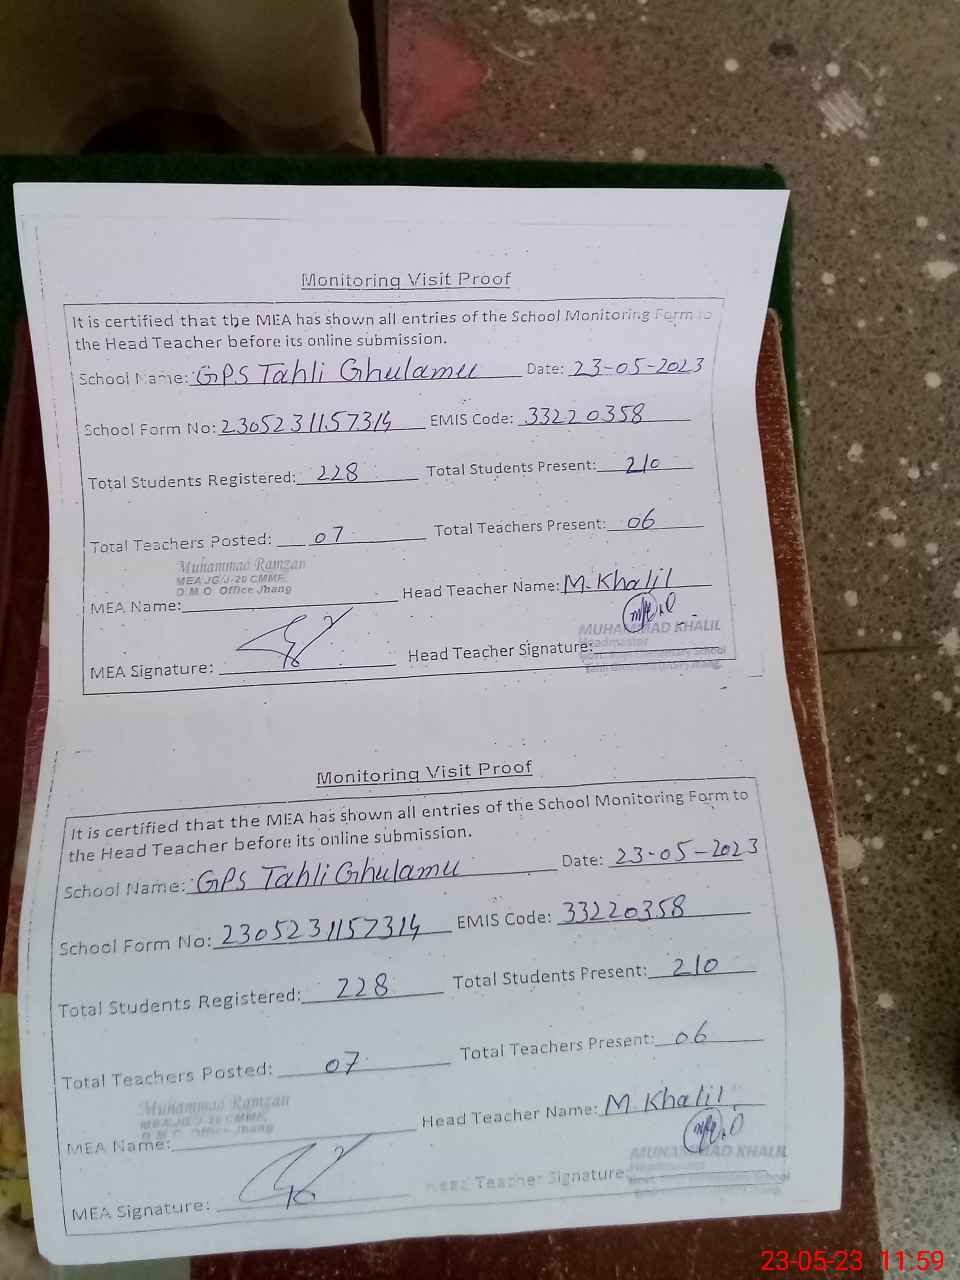 Monitoring Visit Proof
It is certified that the MEA has shown all entries of the School Monitoring Form to
the Head Teacher before its online submission.
School Name: GPS Tahli Ghulamu Date: 23-05-2023
School Form No: 2305231157314 EMIS Code: 33220358
Total Students Registered: 228 Total Students Present: 210
Total Teachers Posted: 07 Total Teachers Present: 06
Muhammad Ramzan
MEA JG/J-20 CMMF,
D.M.O. Office Jhang
MEA Name: Head Teacher Name: M. Khalil
MUHAMMAD KHALIL
Headmaster
MEA Signature: Head Teacher Signature:
Monitoring Visit Proof
It is certified that the MEA has shown all entries of the School Monitoring Form to
the Head Teacher before its online submission.
School Name: GPS Tahli Ghulamu Date: 23-05-2023
School Form No: 2305231157314 EMIS Code: 33220358
Total Students Registered: 228 Total Students Present: 210
Total Teachers Posted: 07 Total Teachers Present: 06
Muhammad Ramzan
MEA JG/J-20 CMMF,
D.M.O. Office Jhang
MEA Name: Head Teacher Name: M. Khalil
MUHAMMAD KHALIL
Headmaster
MEA Signature: Head Teacher Signature:
23-05-23 11:59